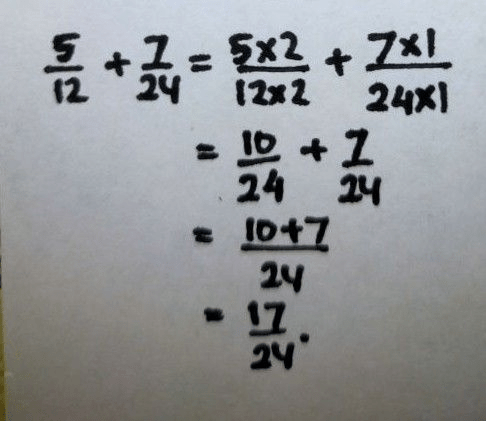 5/12 + 7/24 = 5×2/12×2 + 7×1/24×1
= 10/24 + 7/24
= 10+7/24
= 17/24.